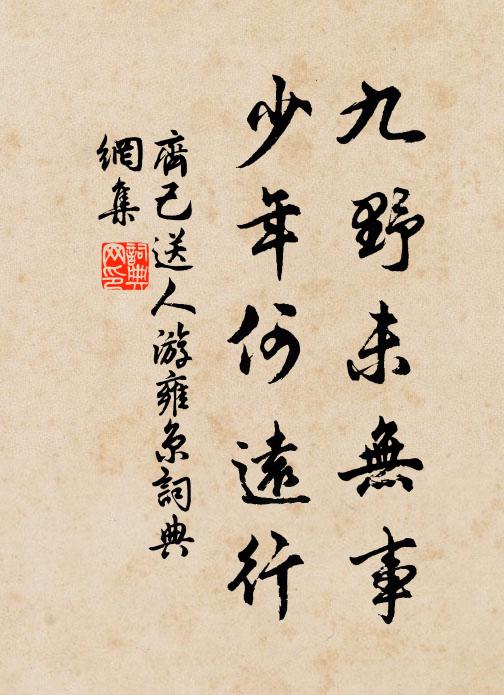 九野未無事
少年何遠行
齊己送人游雍京詞典
網集
詞典网印